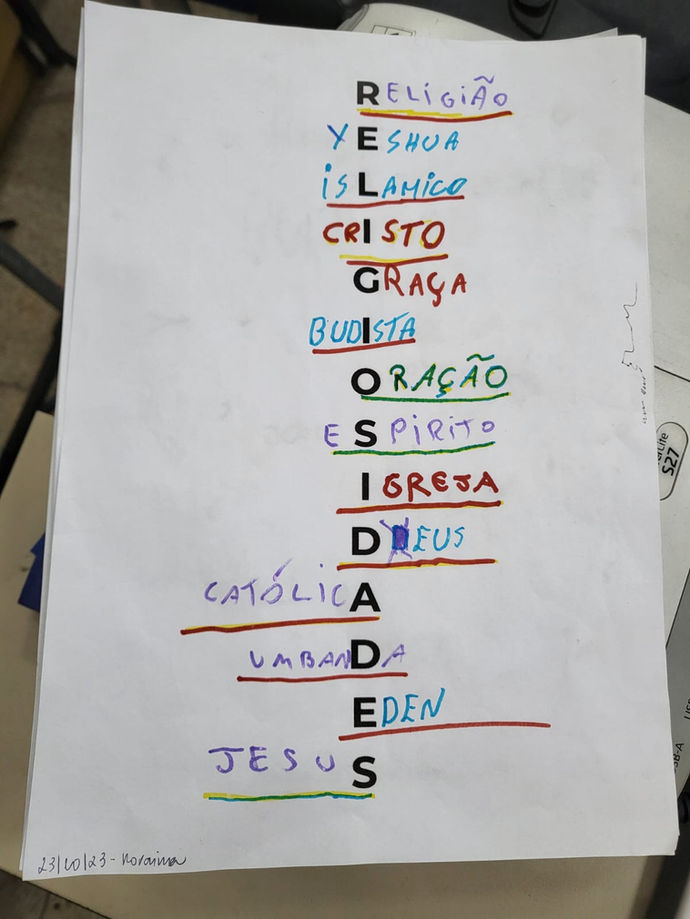 RELIGIÃO
YESHUA
ISLAMICO
CRISTO
GRAÇA
BUDISTA
ORAÇÃO
ESPIRITO
IGREJA
DEUS
CATÓLICA
UMBANDA
EDEN
JESUS
23/10/23 - Roraima
S27